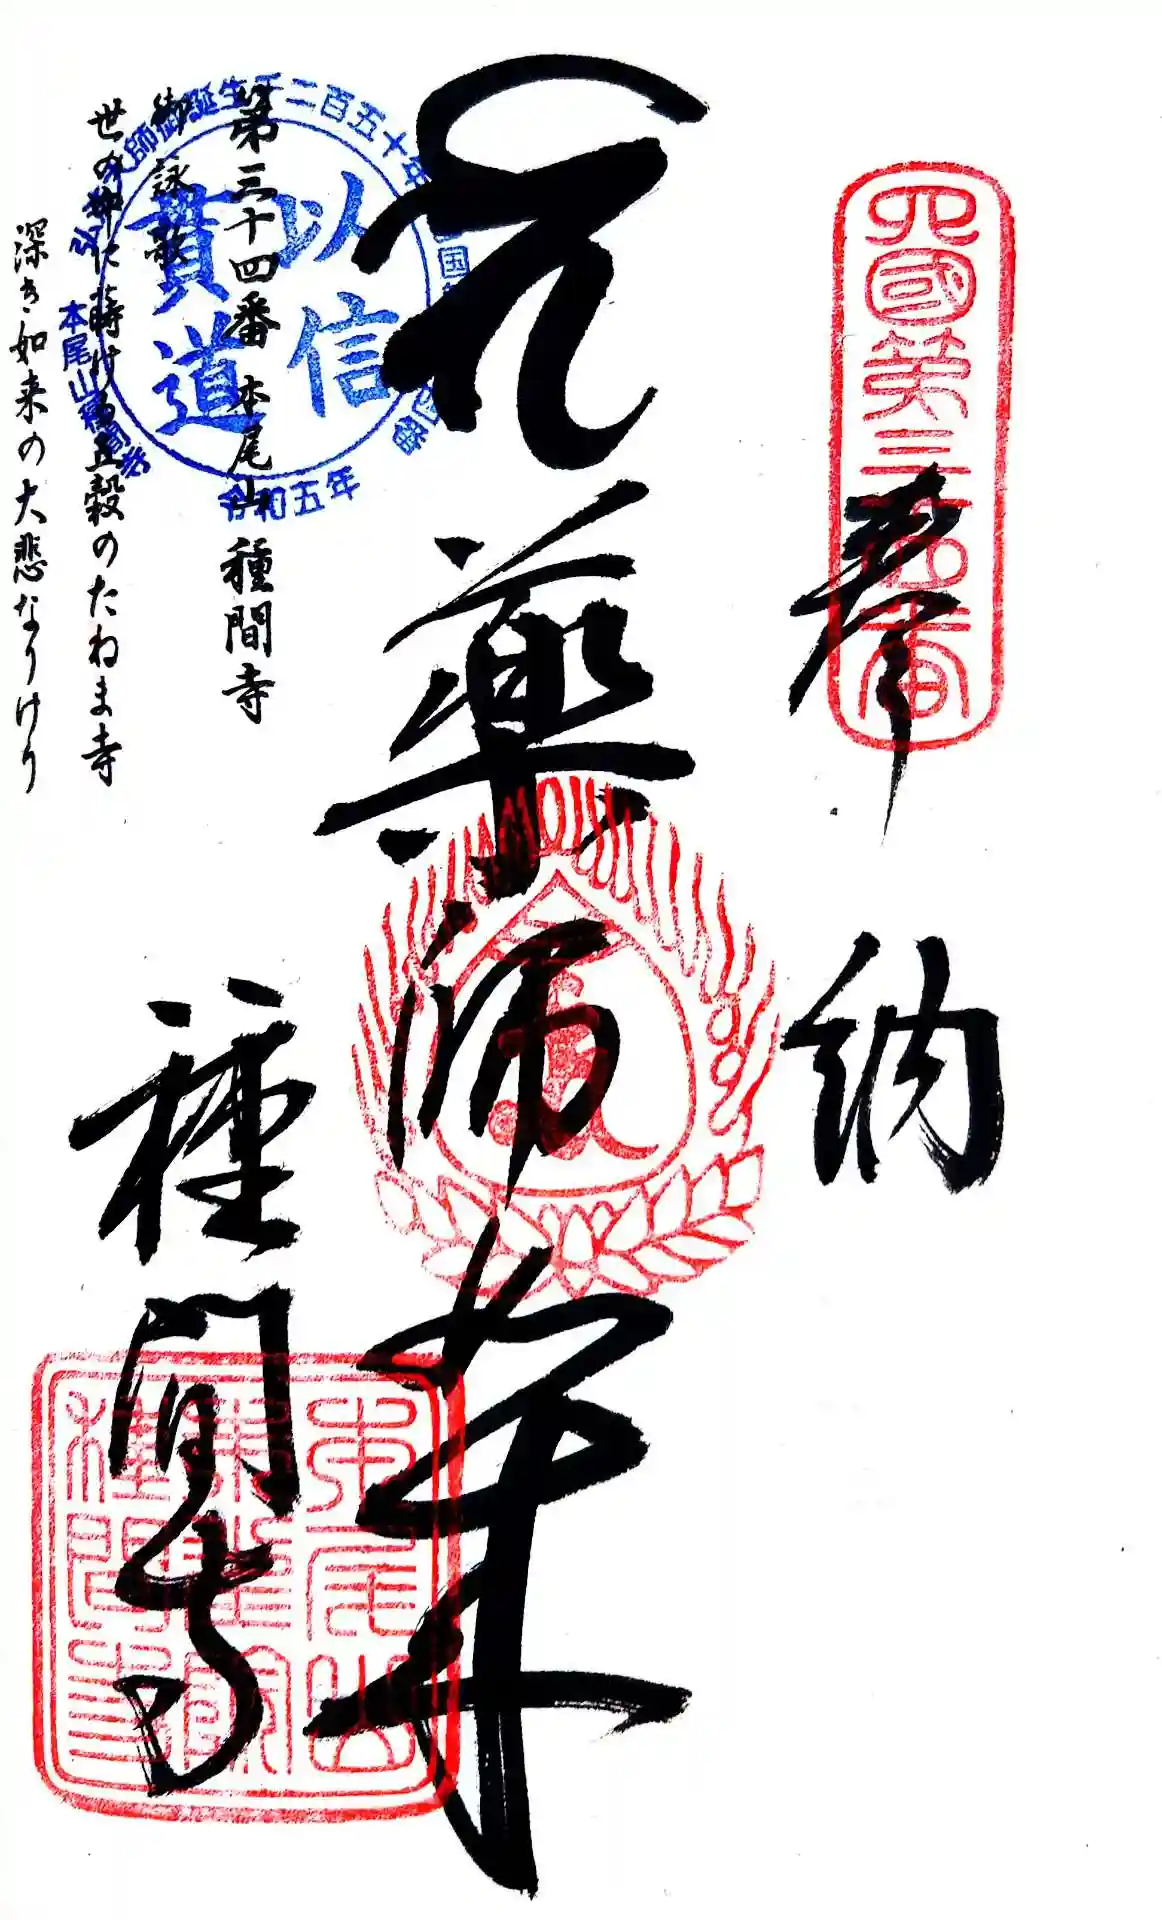 四國第三十四番
奉納
薬師如来
種間寺
本尾山
朱雀院
種間寺
以信
貫道
師御誕生千二百五十年
令和五年
本尾山種間寺
第三十四番 本尾山 種間寺
御詠歌
世の中に蒔ける五穀のたねま寺
深き如来の大悲なりけり